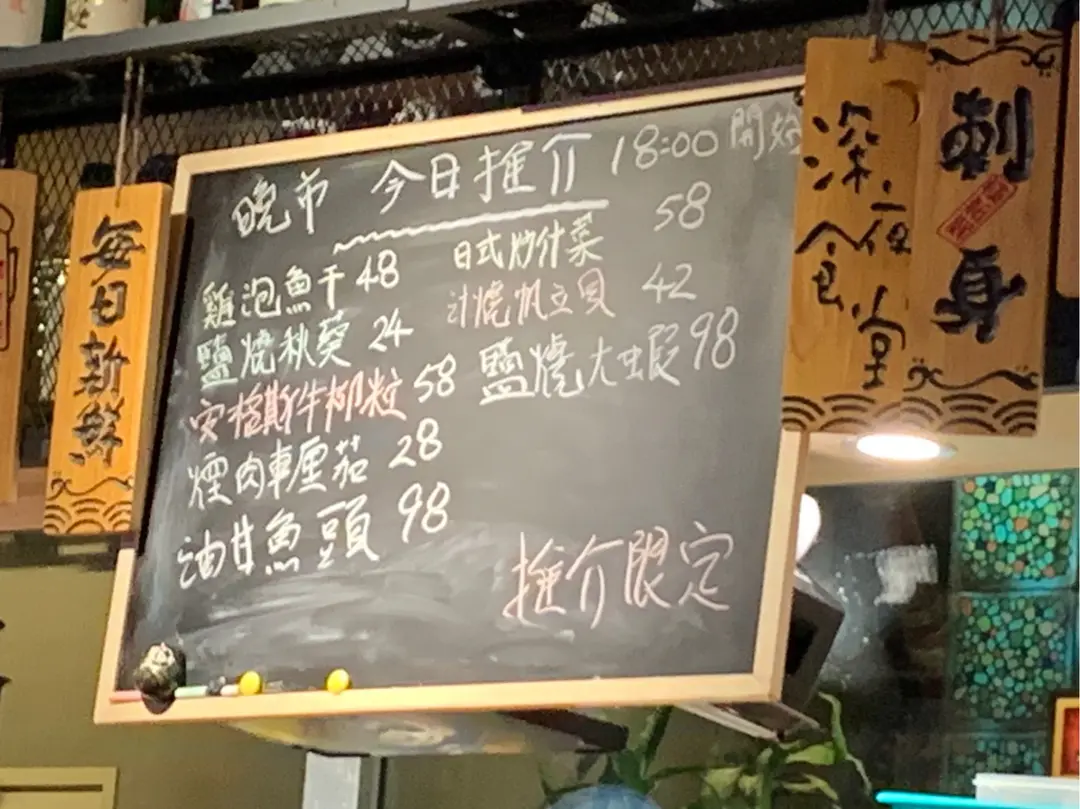 每日新鮮
晚市 今日推介 18:00 開始
雞泡魚干 48
鹽燒秋葵 24
安格斯牛柳粒 58
煙肉車厘茄 28
油甘魚頭 98
日式炒什菜 58
汁燒帆立貝 42
鹽燒大蝦 98
推介限定
深夜食堂
刺身